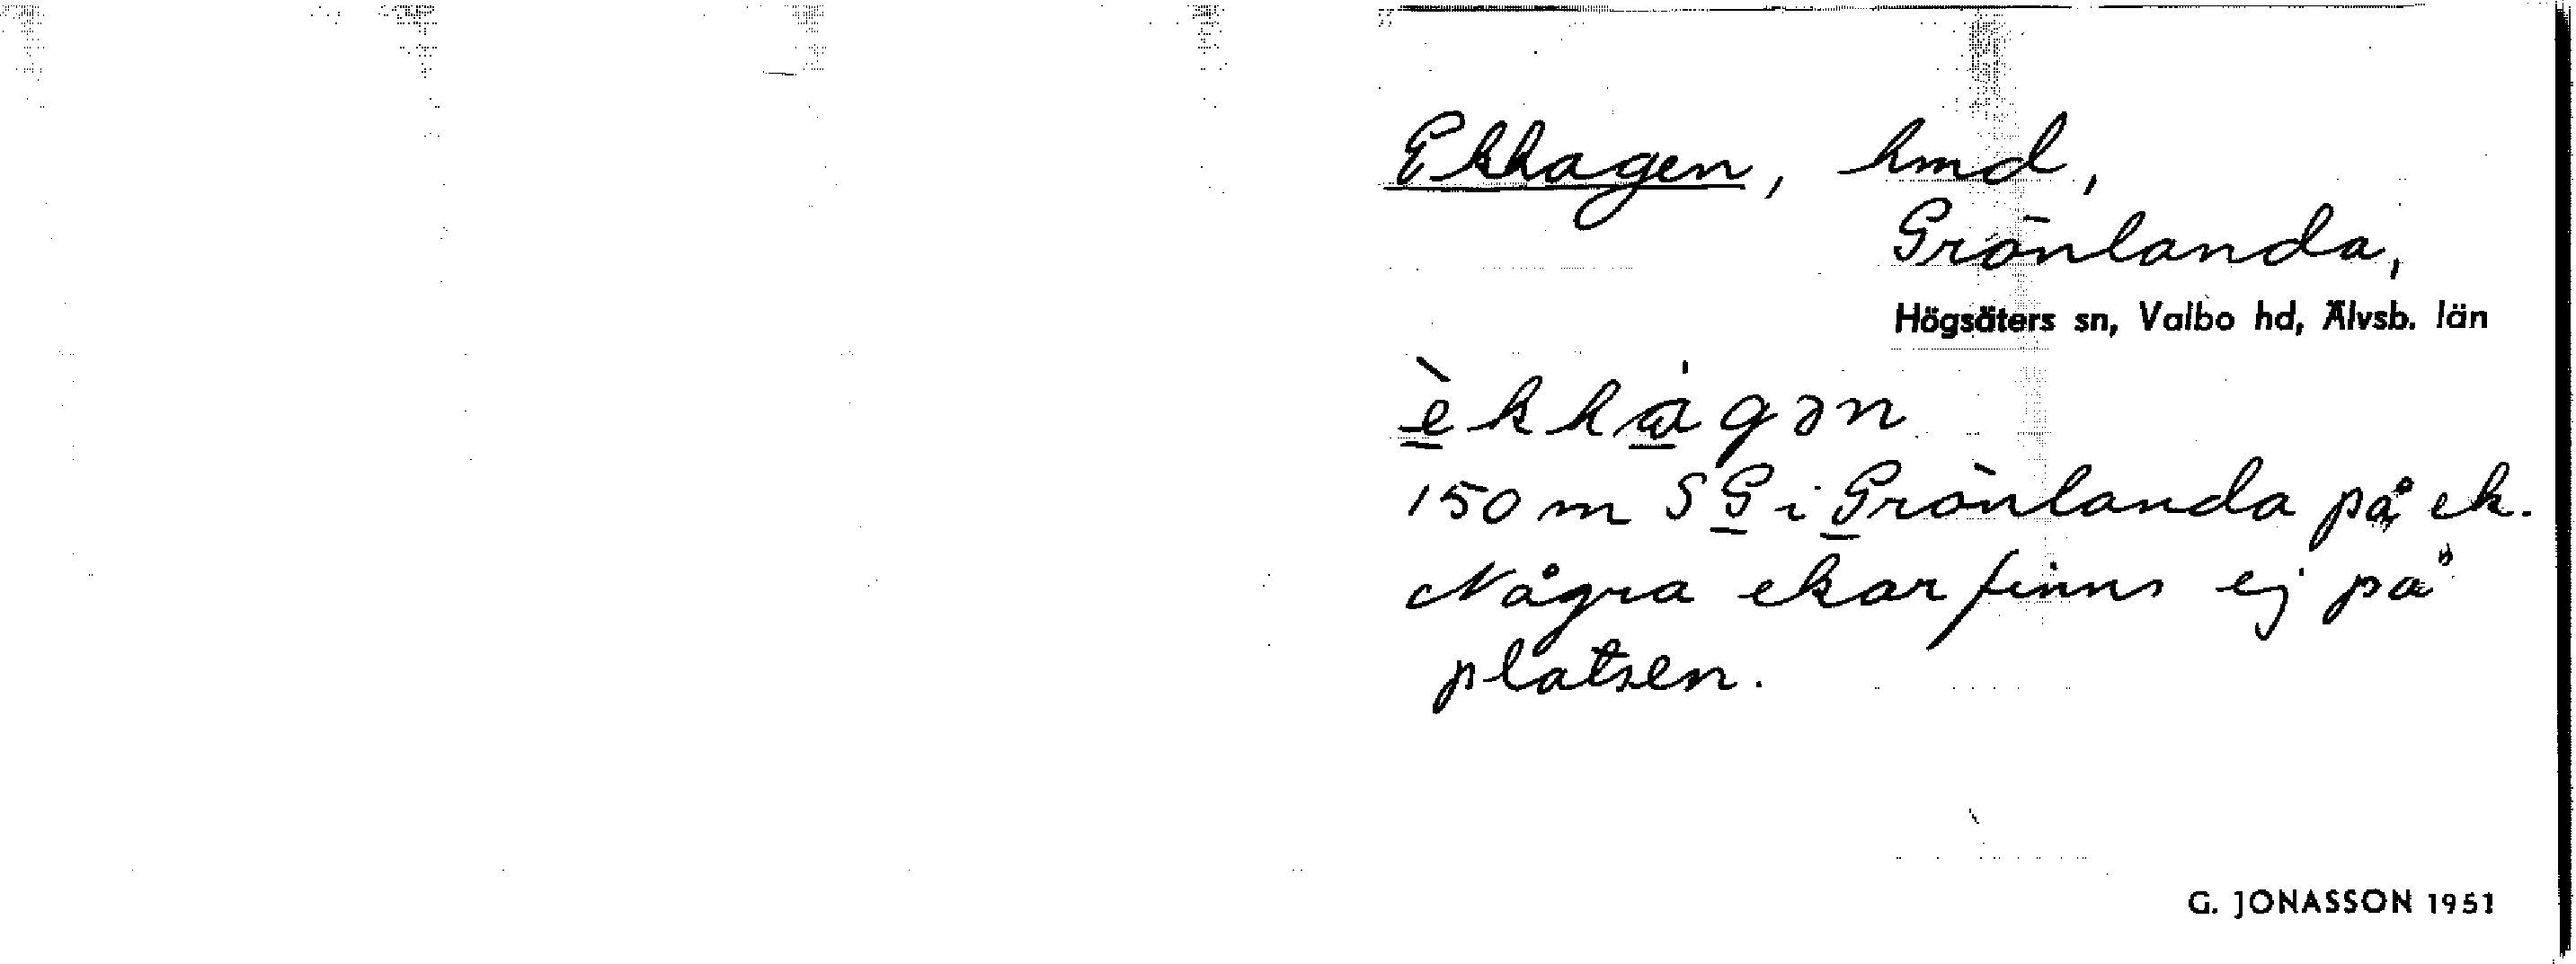 Ekhagen, hmd,
Grönlanda,
Högsäters sn, Valbo hd, Älvsb. län
èkhàgən
150 m S G i Grönlanda på ek.
Några ekar finns ej på
platsen.
G. JONASSON 1951